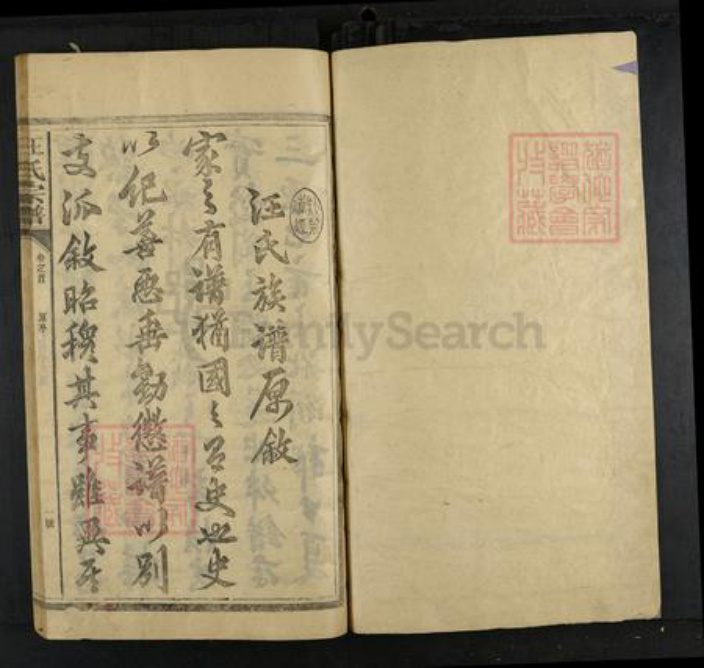 汪氏族譜原敘
家之有譜猶國之有史也史
以紀善惡垂勸懲譜以別
支派敘昭穆其事雖異其
汪氏宗譜
卷之首
原序
一號
FamilySearch